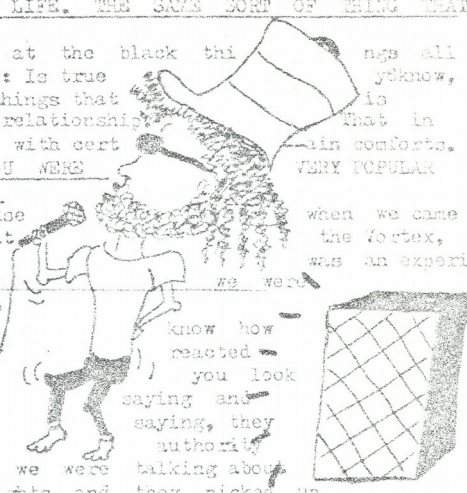 LIFE. THE SAME SORT OF THING THAT
at the black thi ngs all
: Is true ydknow,
hings that is
relationship That in
with cert ain comforts.
OU WERE VERY POPULAR
se when we came
t the Vortex,
was an experi
we were
know how
reacted
you look
saying and
saying, they
authority
we were talking about
ghts and they picked up